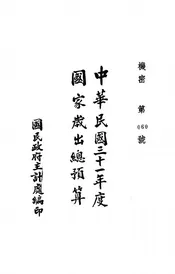 機密 第 060 號
中華民國三十一年度
國家歲出總預算
國民政府主計處編印